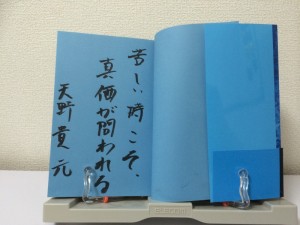 苦しい時こそ、
真価が問われる
天野貴元